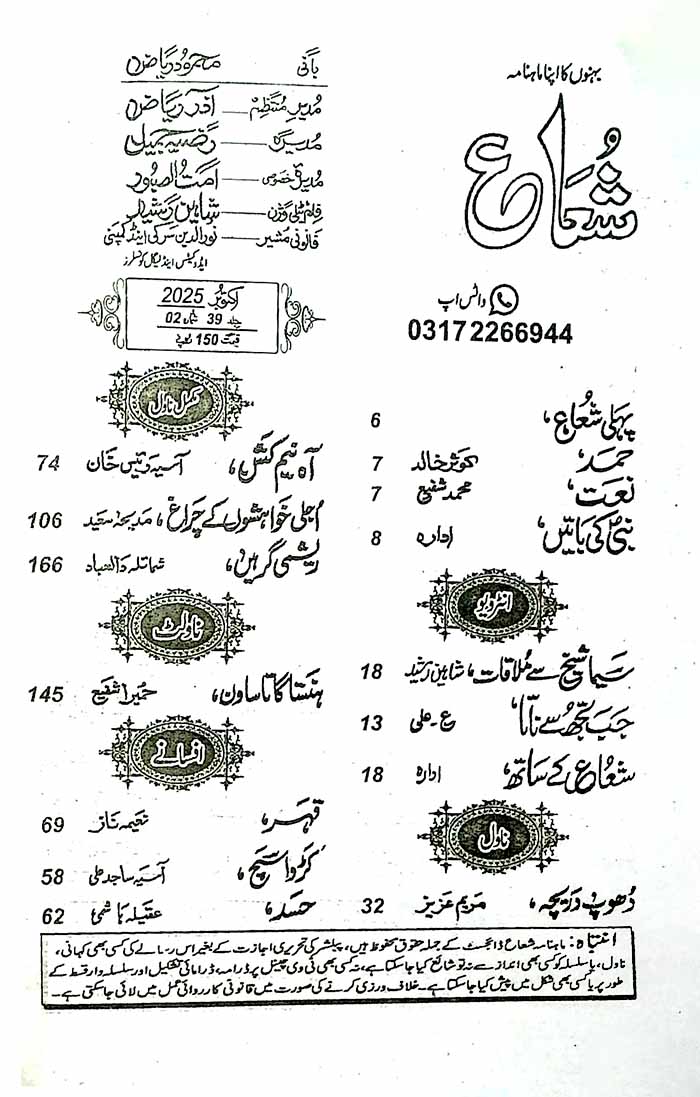 بہنوں کا اپنا ماہنامہ
شُعَاع
واٹس اپ
03172266944
بانی محمود ریاض
مدیر منتظم — آذر ریاض
مدیرہ — رضیہ جمیل
مدیرہ خصوصی — امت الصبور
فلم، ٹیلی وژن — شاہین رشید
قانونی مشیر — نورالدین سرکی اینڈ کمپنی
ایڈوکیٹس اینڈ لیگل کونسلرز
اکتوبر 2025
جلد 39 شمارہ 02
قیمت 150 روپے
پہلی شُعاع، 6
حمد، کوثر خالد 7
نعت، محمد شفیع 7
نبیؐ کی باتیں، ادارہ 8
انٹرویو
سیما شیخ سے مُلاقات، شاہین رشید 18
جب تجھ سے ناتا، ع۔علی 13
شعاع کے ساتھ، ادارہ 18
ناول
دُھوپ دریچہ، مریم عزیز 32
مکمل ناول
آہ نیم کش، آسیہ رئیس خان 74
اُجلی خواہشوں کے چراغ، مدیحہ سعید 106
ریشمی گرہیں، شمائلہ دلعباد 166
ناولٹ
ہنستا گاتا ساون، حمیرا شفیع 145
افسانے
قہر، نعیمہ ناز 69
کڑوا سچ، آسیہ ساجد علی 58
حسد، عقیلہ ہاشمی 62
انتباہ: ماہنامہ شعاع ڈائجسٹ کے جملہ حقوق محفوظ ہیں، پبلشر کی تحریری اجازت کے بغیر اس رسالے کی کسی بھی کہانی،
ناول، یا سلسلہ کو کسی بھی انداز سے نہ تو شائع کیا جا سکتا ہے، نہ کسی بھی ٹی وی چینل پر ڈرامہ، ڈرامائی تشکیل اور سلسلہ وار قسط کے
طور پر یا کسی بھی شکل میں پیش کیا جا سکتا ہے۔ خلاف ورزی کرنے کی صورت میں قانونی کارروائی عمل میں لائی جا سکتی ہے۔